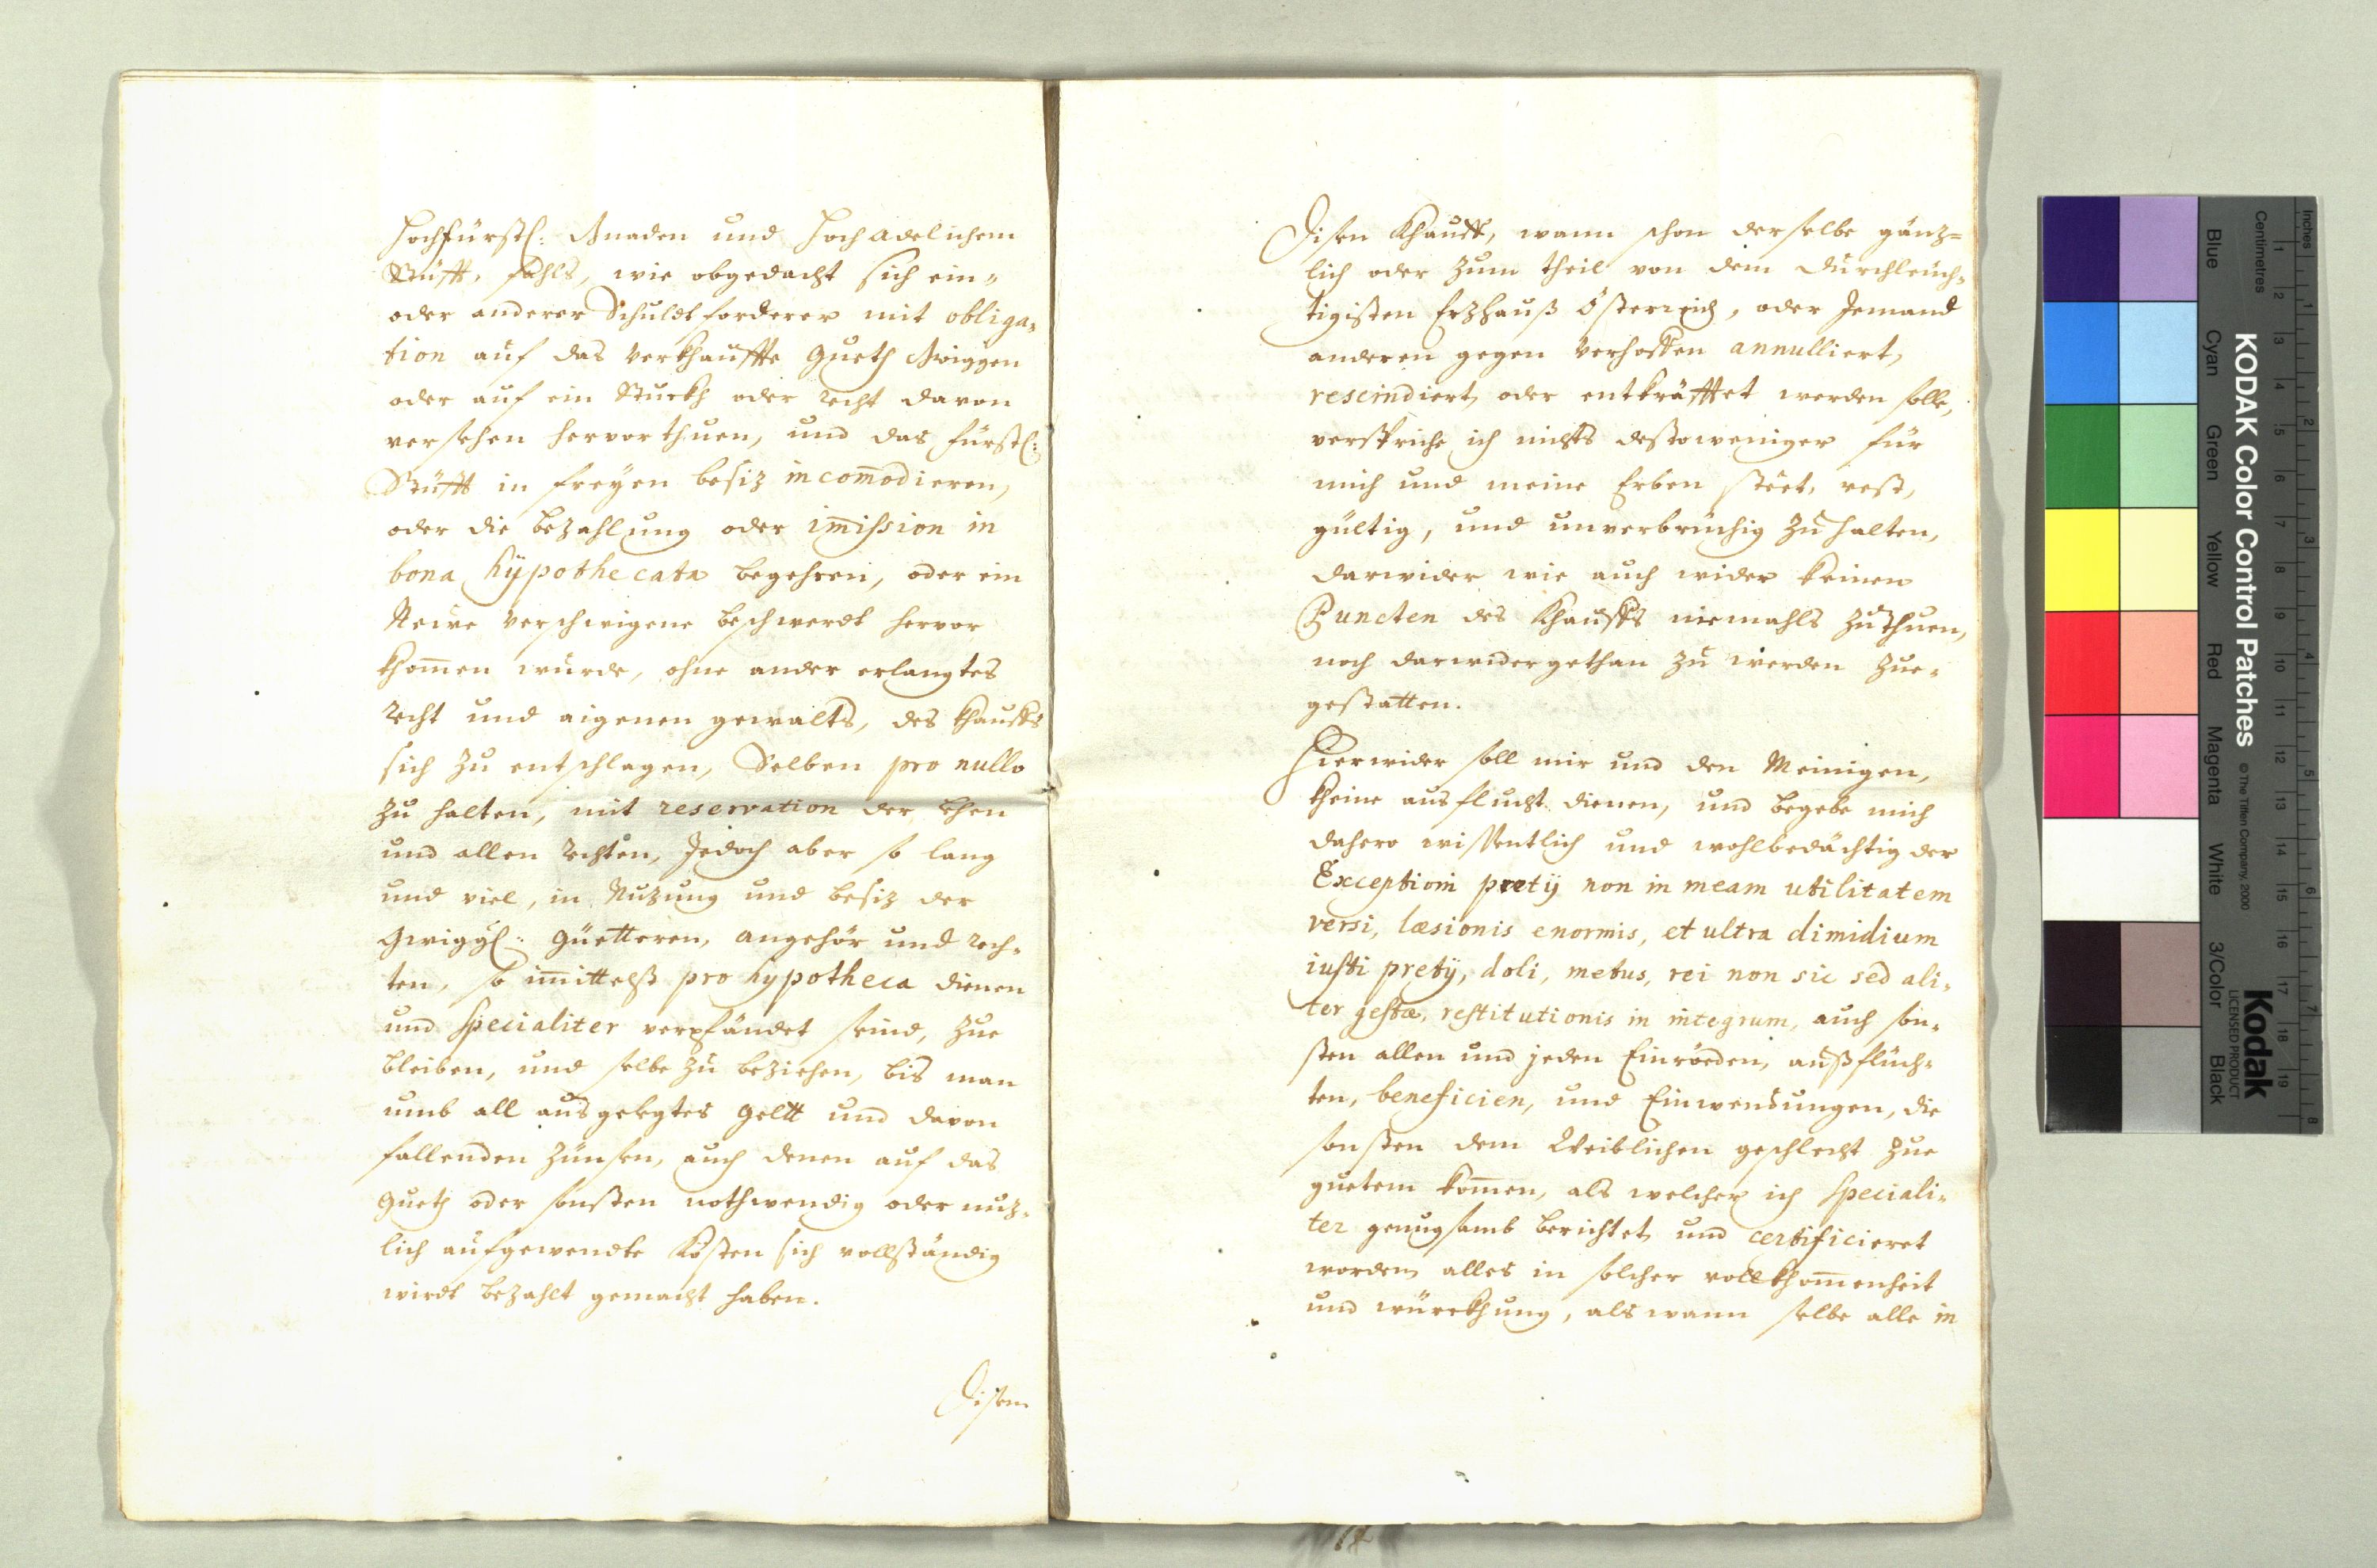 Hochfürstl: Gnaden und Hochadelichem
Stüfft, fahls, wie obgedacht sich ein„
oder anderer Schuldtforderer mit obliga„
tion auf das verkhauffte gueth Gwiggen
oder auf ein Stuckh oder recht darvon
versehen hervorthuen, und das fürstl:
Stüfft in freÿen besiz incom̄odieren,
oder die bezahlung oder im̄ission in
bona hÿpothecata begehren, oder ein
Neüe verschwigene beschwerdt hervor
khom̄en wurde, ohne ander erlangtes
recht und aigenen gewalts, des khauffs
sich zu entschlagen, Selben pro nullo
zu halten, mit reservation der Ehen
und allen rechten, Jedoch aber so lang
und viel, in Nuzung und besiz der
Gwiggl: güetteren, angehör und rech„
ten, so im̄ittelst pro hypotheca dienen
und specialiter verpfändet seind, zue
bleiben, und selbe zu beziehen, bis man
umb all ausgelegtes gelt und davon
fallenden zünsen, auch denen auf das
gueth oder sonsten nothwendig oder nuz„
lich aufgewendte Kösten sich vollständig
wirdt bezahlt gemacht haben.
Disem
Disen Khauff, wann schon derselbe gänz=
lich oder zum theil von dem durchleüch„
tigisten Erzhauß Österreich, oder Jemand
anderen gegen verhoffen annulliert,
rescindiert, oder entkräfftet werden solle,
verspriche ich nichts destoweniger für
mich und meine Erben stëet, vest,
gültig, und unverbrüchig zu halten,
darwider wie auch wider keinen
Puncten des Khauffs niemahls zu thuen,
noch darwidergethan zu werden zue„
gestatten.
Hierwider soll mir und den Meinigen,
kheine ausflucht dienen, und begebe mich
dahero wissentlich und wohlbedächtig der
Exceptioni pretÿ non in meam utilitatem
versi, læsionis enormis, et ultra dimidium
iusti pretÿ, doli, metus, rei non sic sed ali„
ter gestæ, restitutionis in integrum, auch son„
sten allen und jeden Einröeden, außflüch„
ten, beneficien, und Einwendungen, die
sonsten dem Weiblichen geschlecht zue
guetem kom̄en, als welcher ich speciali„
ter genugsamb berichtet und certificieret
worden, alles in solcher vollkhom̄enheit
und würckhung, als wann selbe alle in
KODAK Color Control Patches
© The Tiffen Company, 2000
Kodak
LICENSED PRODUCT
Inches
Centimetres
Blue
Cyan
Green
Yellow
Red
Magenta
White
3/Color
Black